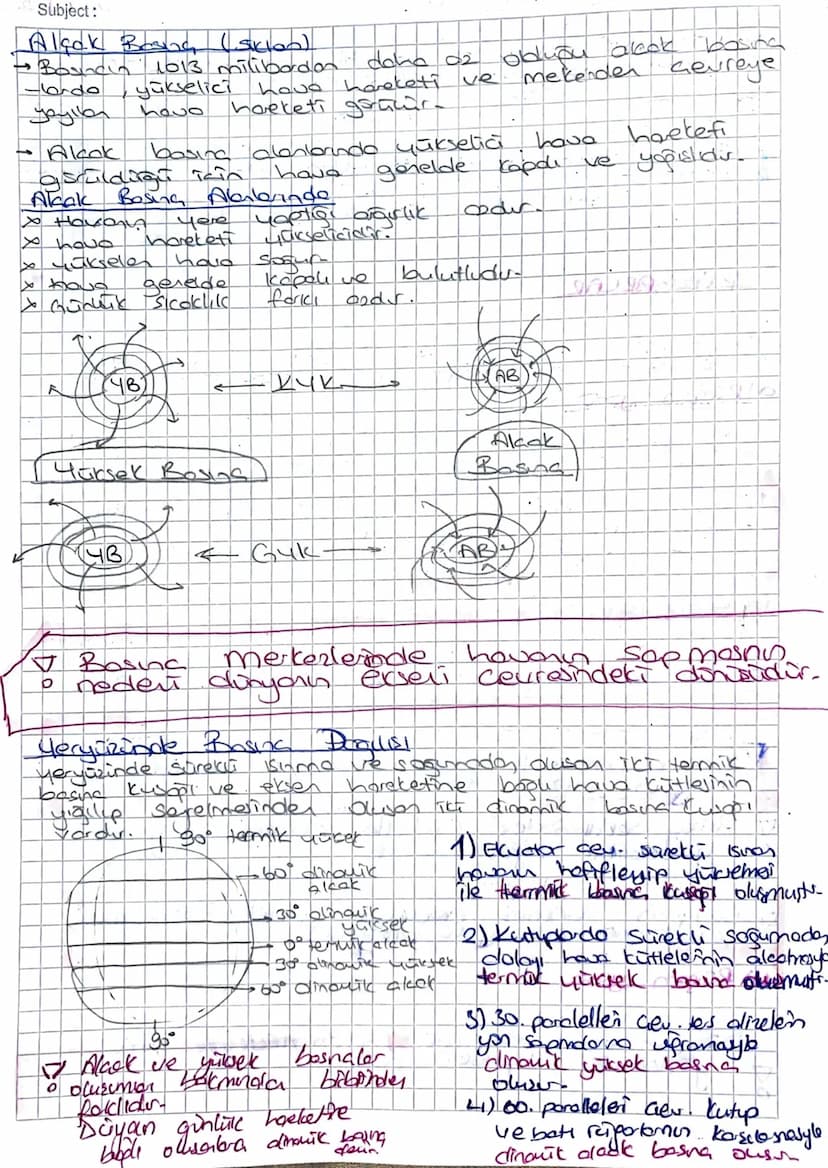 Subject:
Alçak Basınç (Siklon)
→ Basıncın 1013 milibardan daha az olduğu alçak basınç
-larda, yükselici hava hareketi ve merkezden çevreye
yayılan hava hareketi görülür.
→ Alçak basınç alanlarında yükselici hava hareketi
görüldüğü için hava genelde kapalı ve yağışlıdır.
Alçak Basınç Alanlarında
x Havanın yere yaptığı ağırlık azdır.
x hava hareketi yükselicidir.
x yükselen hava soğur
x hava genelde kapalı ve bulutludur.
x Günlük sıcaklık farkı azdır.
YB ← KYK → AB
Yüksek Basınç
Alçak Basınç
YB ← GYK → AB
Basınç merkezlerinde havanın sapmasının
nedeni dünyanın ekseni çevresindeki dönüşüdür.
Yeryüzünde Basınç Dağılışı
Yeryüzünde sürekli ısınma ve soğumadan oluşan iki termik
basınç kuşağı ve eksen hareketine bağlı hava kütlesinin
yığılıp seyrelmesinden oluşan iki dinamik basınç kuşağı
vardır.
90° termik yüksek
60° dinamik alçak
30° dinamik yüksek
0° termik alçak
30° dinamik yüksek
60° dinamik alçak
90°
1) Ekvator çev. sürekli ısınan
havanın hafifleyip yükselmesi
ile termik basınç kuşağı oluşmuştur.
2) Kutuplarda sürekli soğumadan
dolayı hava kütlelerinin alçalmasıyla
termik yüksek basınç oluşmuştur.
3) 30. paralelleri çev. ters alizelerin
yön sapmalarına uğramasıyla
dinamik yüksek basınç
oluşur.
4) 60. paralelleri çev. kutup
ve batı rüzgarlarının karşılaşmasıyla
dinamik alçak basınç oluşur
Alçak ve yüksek basınçlar
oluşumları bakımından birbirinden
farklıdır.
günlük harekete
bağlı oluşanlara dinamik basınç
denir